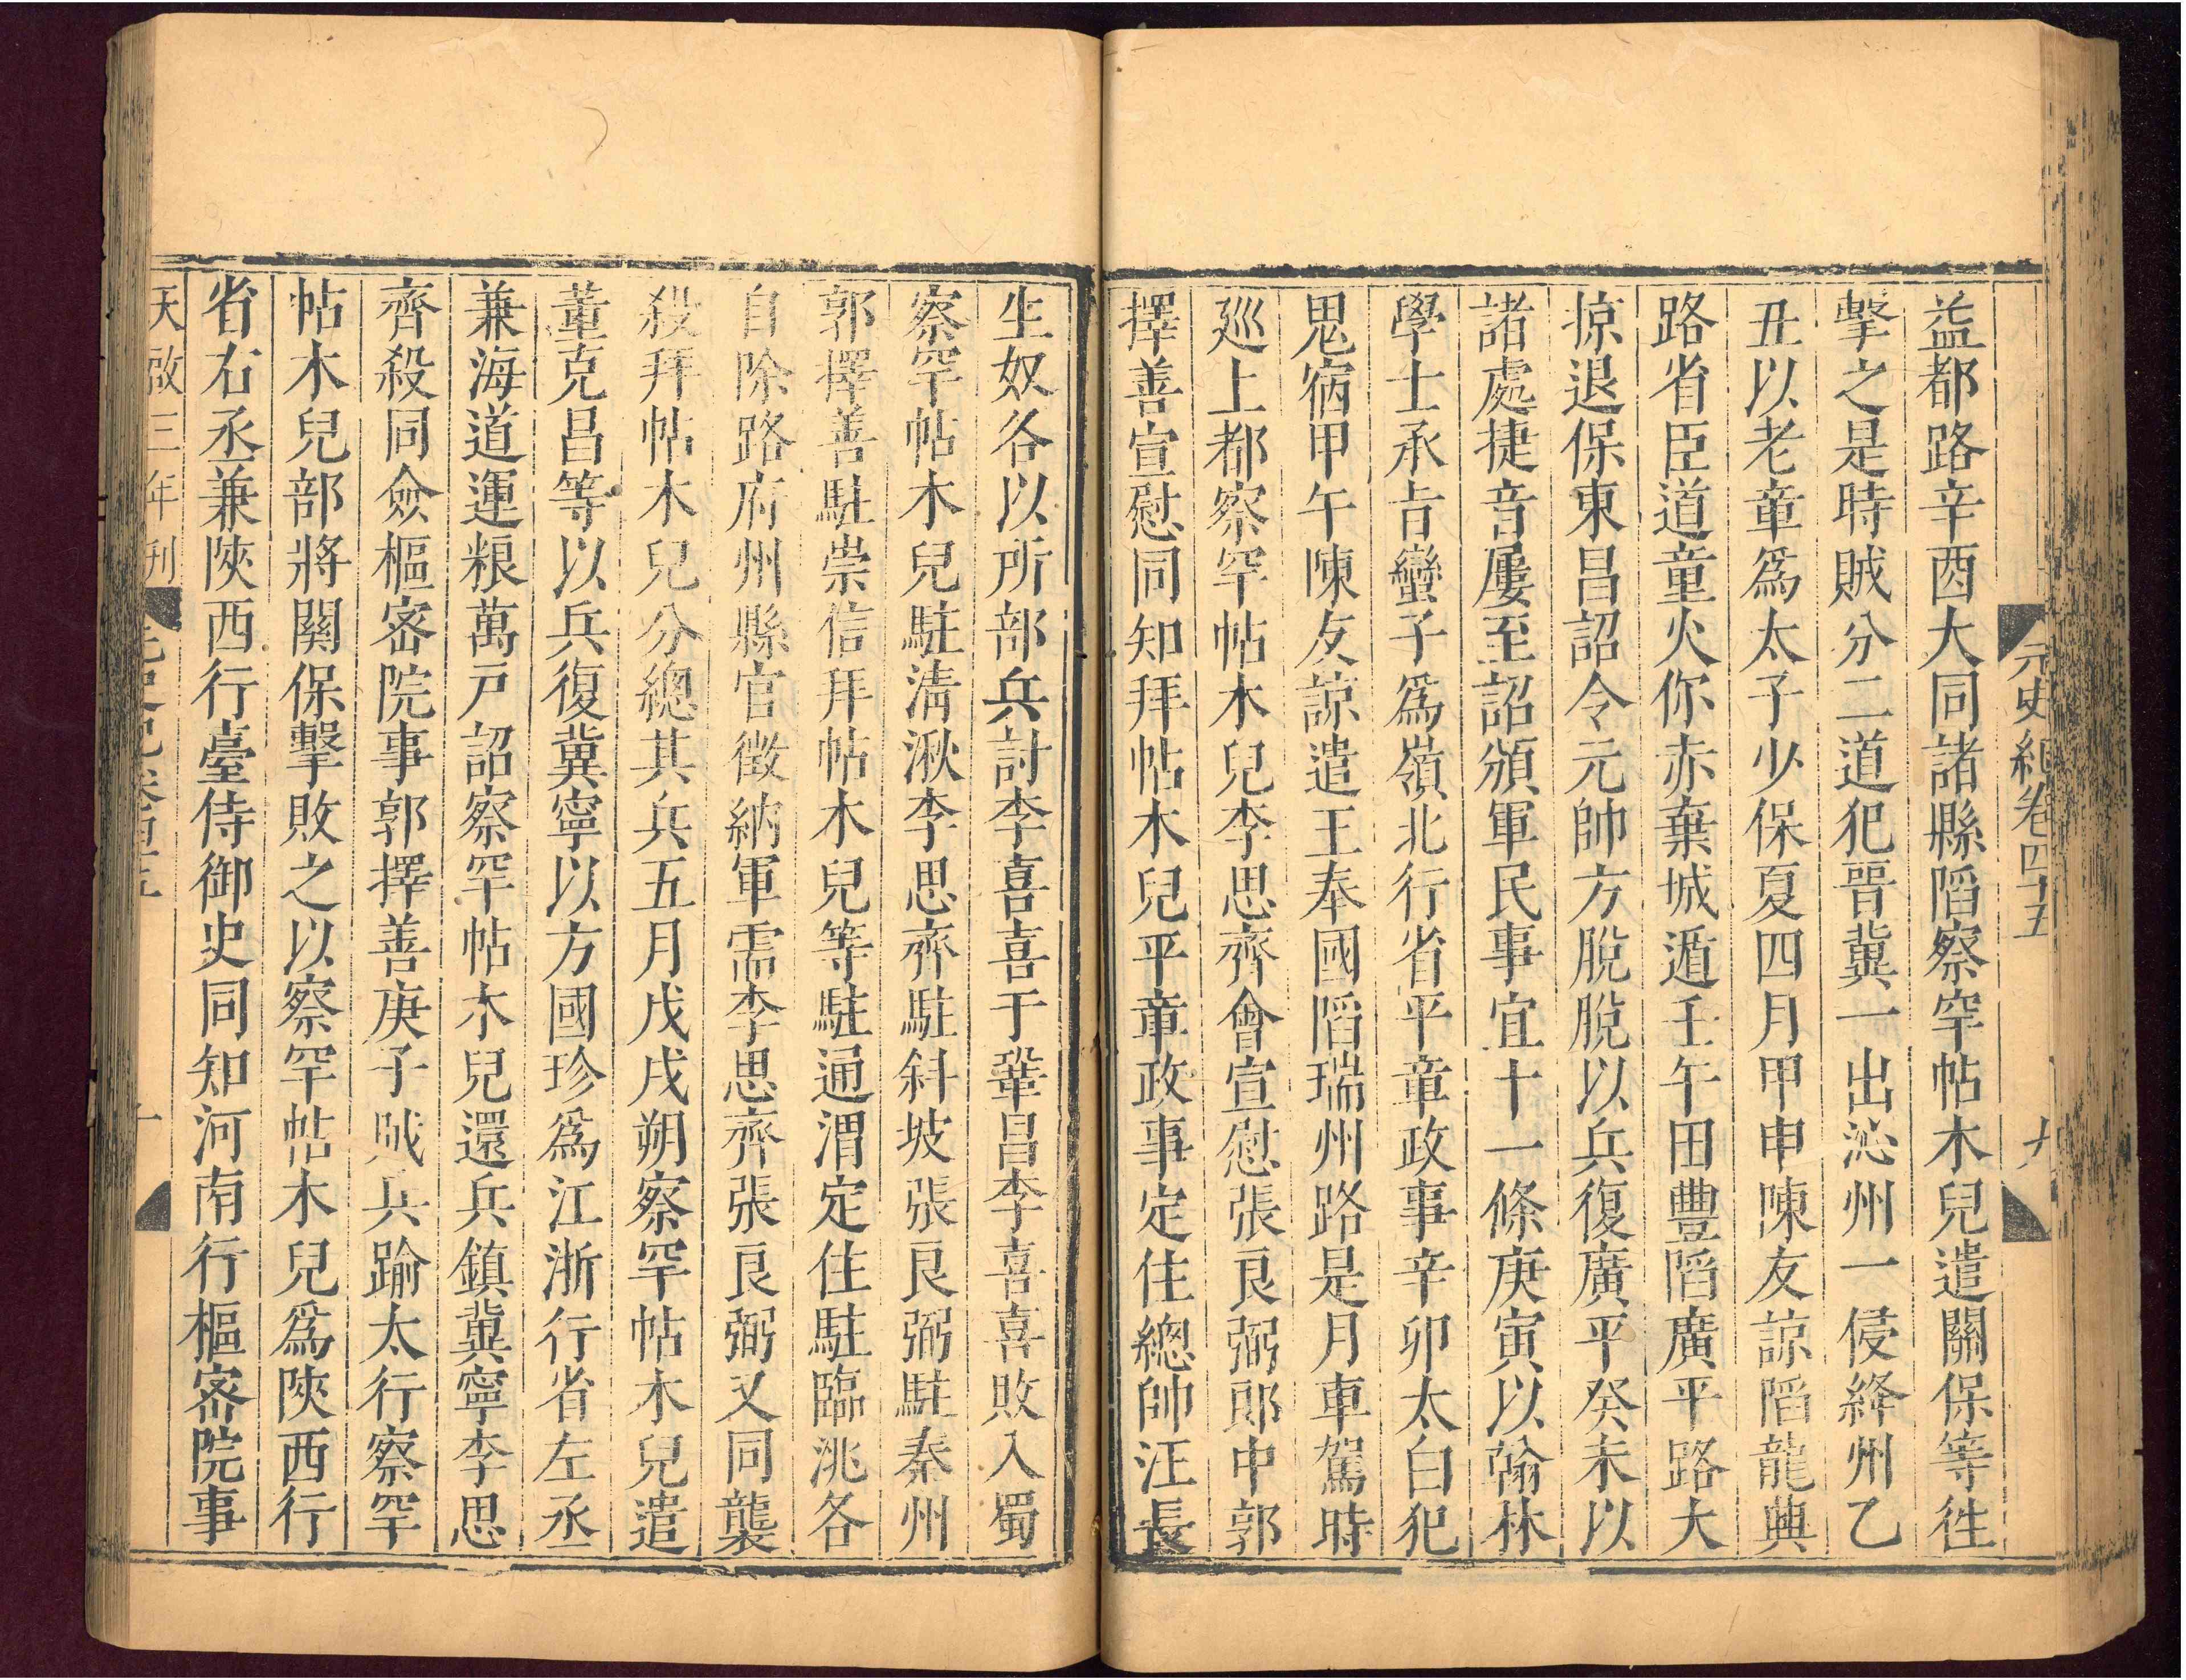 元史紀卷四十五
九
益都路辛酉大同諸縣䧟察罕帖木兒遣關保等徃
擊之是時賊分二道犯晉冀一出沁州一侵絳州乙
丑以老章爲太子少保夏四月甲申陳友諒䧟龍興
路省臣道童火你赤棄城遁壬午田豐䧟廣平路大
掠退保東昌詔令元帥方脫脫以兵復廣平癸未以
諸處捷音屢至詔頒軍民事宜十一條庚寅以翰林
學士承㫖蠻子爲嶺北行省平章政事辛卯太白犯
鬼宿甲午陳友諒遣王奉國䧟瑞州路是月車駕時
廵上都察罕帖木兒李思齊會宣慰張良弼郎中郭
擇善宣慰同知拜帖木兒平章政事定住總帥汪長
生奴各以所部兵討李喜喜于鞏昌李喜喜敗入蜀
察罕帖木兒駐清湫李思齊駐斜坡張良弼駐秦州
郭擇善駐崇信拜帖木兒等駐通渭定住駐臨洮各
自除路府州縣官徵納軍需李思齊張良弼又同襲
殺拜帖木兒分總其兵五月戊戌朔察罕帖木兒遣
董克昌等以兵復冀寧以方國珍爲江浙行省左丞
兼海道運粮萬戸詔察罕帖木兒還兵鎮冀寧李思
齊殺同僉樞密院事郭擇善庚子賊兵踰太行察罕
帖木兒部將關保擊敗之以察罕帖木兒爲陝西行
省右丞兼陝西行臺侍御史同知河南行樞密院事
天啟三年刊
十